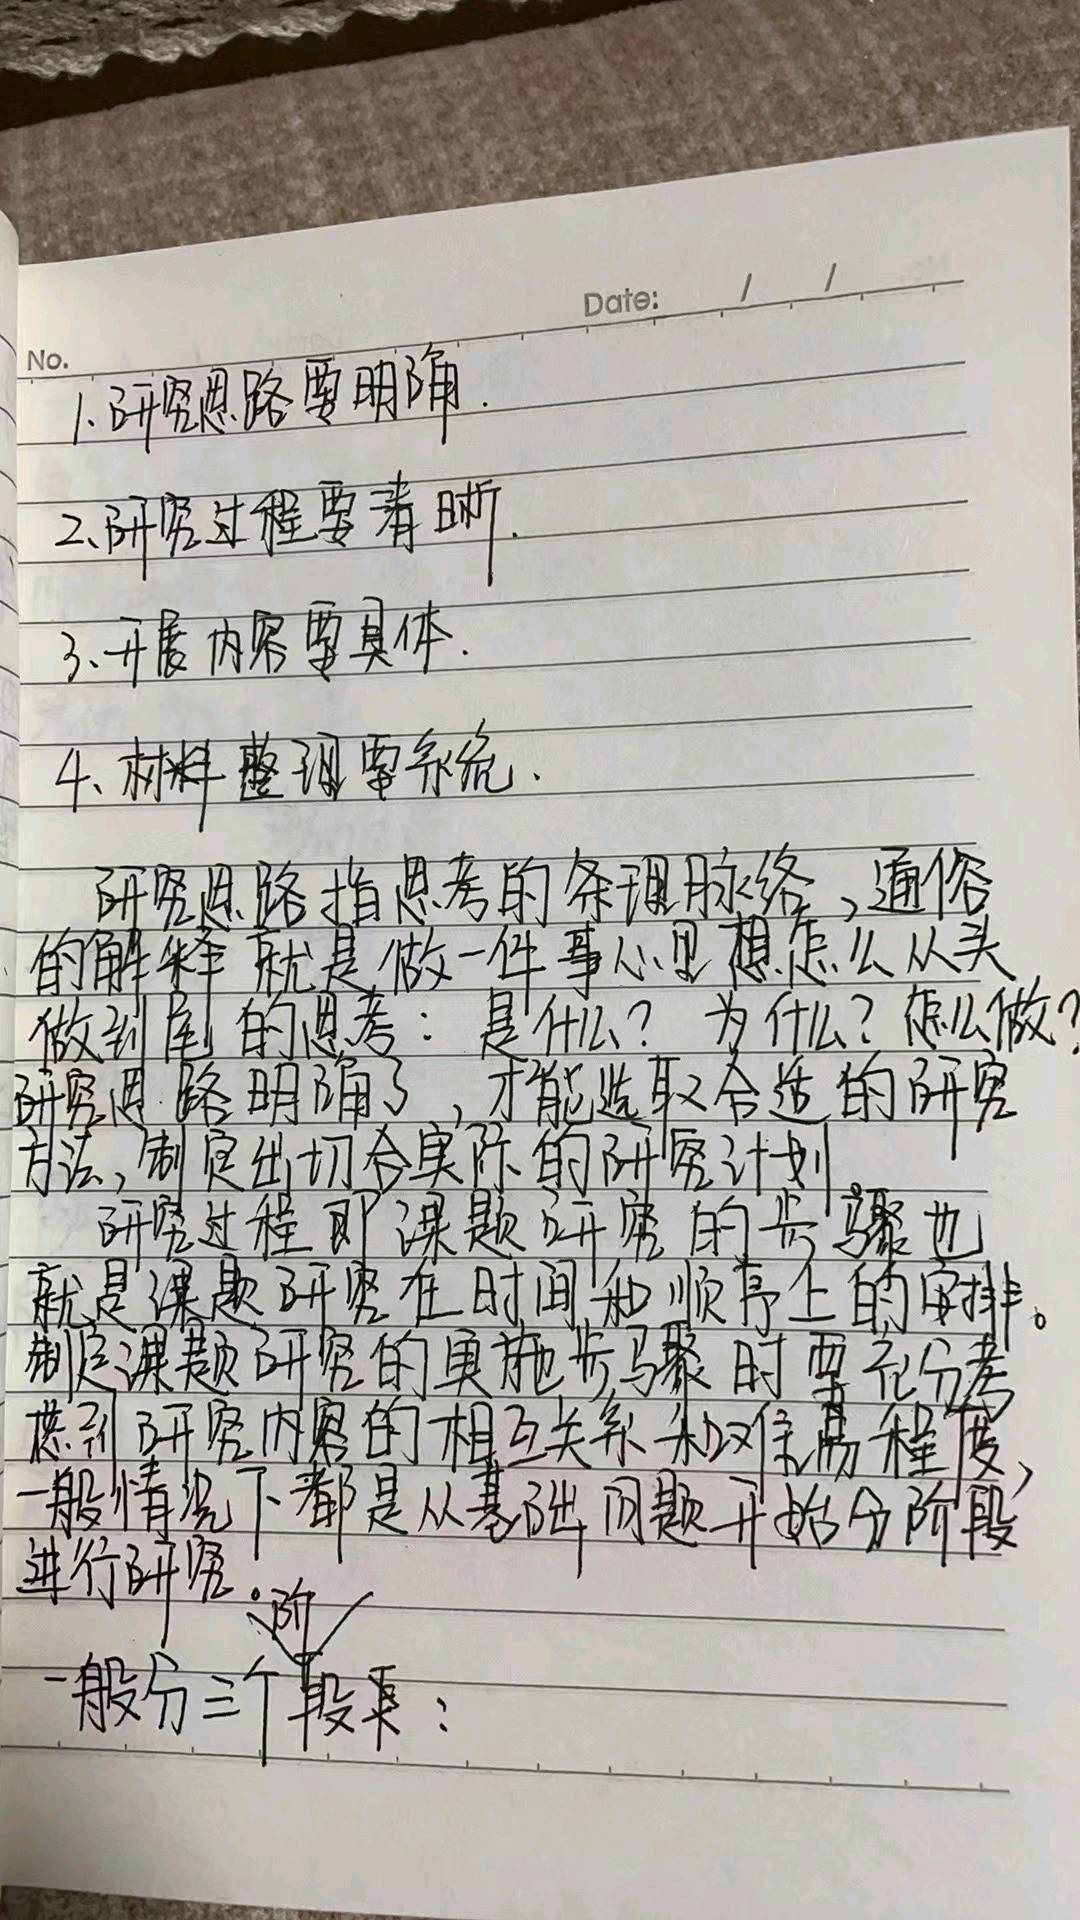 Date: / /
No.
1.研究思路要明确.
2、研究过程要清晰.
3、开展内容要具体.
4、材料整理要系统.
研究思路指思考的条理脉络,通俗
的解释就是做一件事心里想怎么从头
做到尾的思考:是什么?为什么?怎么做?
研究思路明确了,才能选取合适的研究
方法,制定出切合实际的研究计划.
研究过程即课题研究的步骤也
就是课题研究在时间和顺序上的安排。
制定课题研究的实施步骤时要充分考
虑到研究内容的相互关系和难易程度,
一般情况下都是从基础问题开始分阶段
进行研究。
一般分三个阶段来: